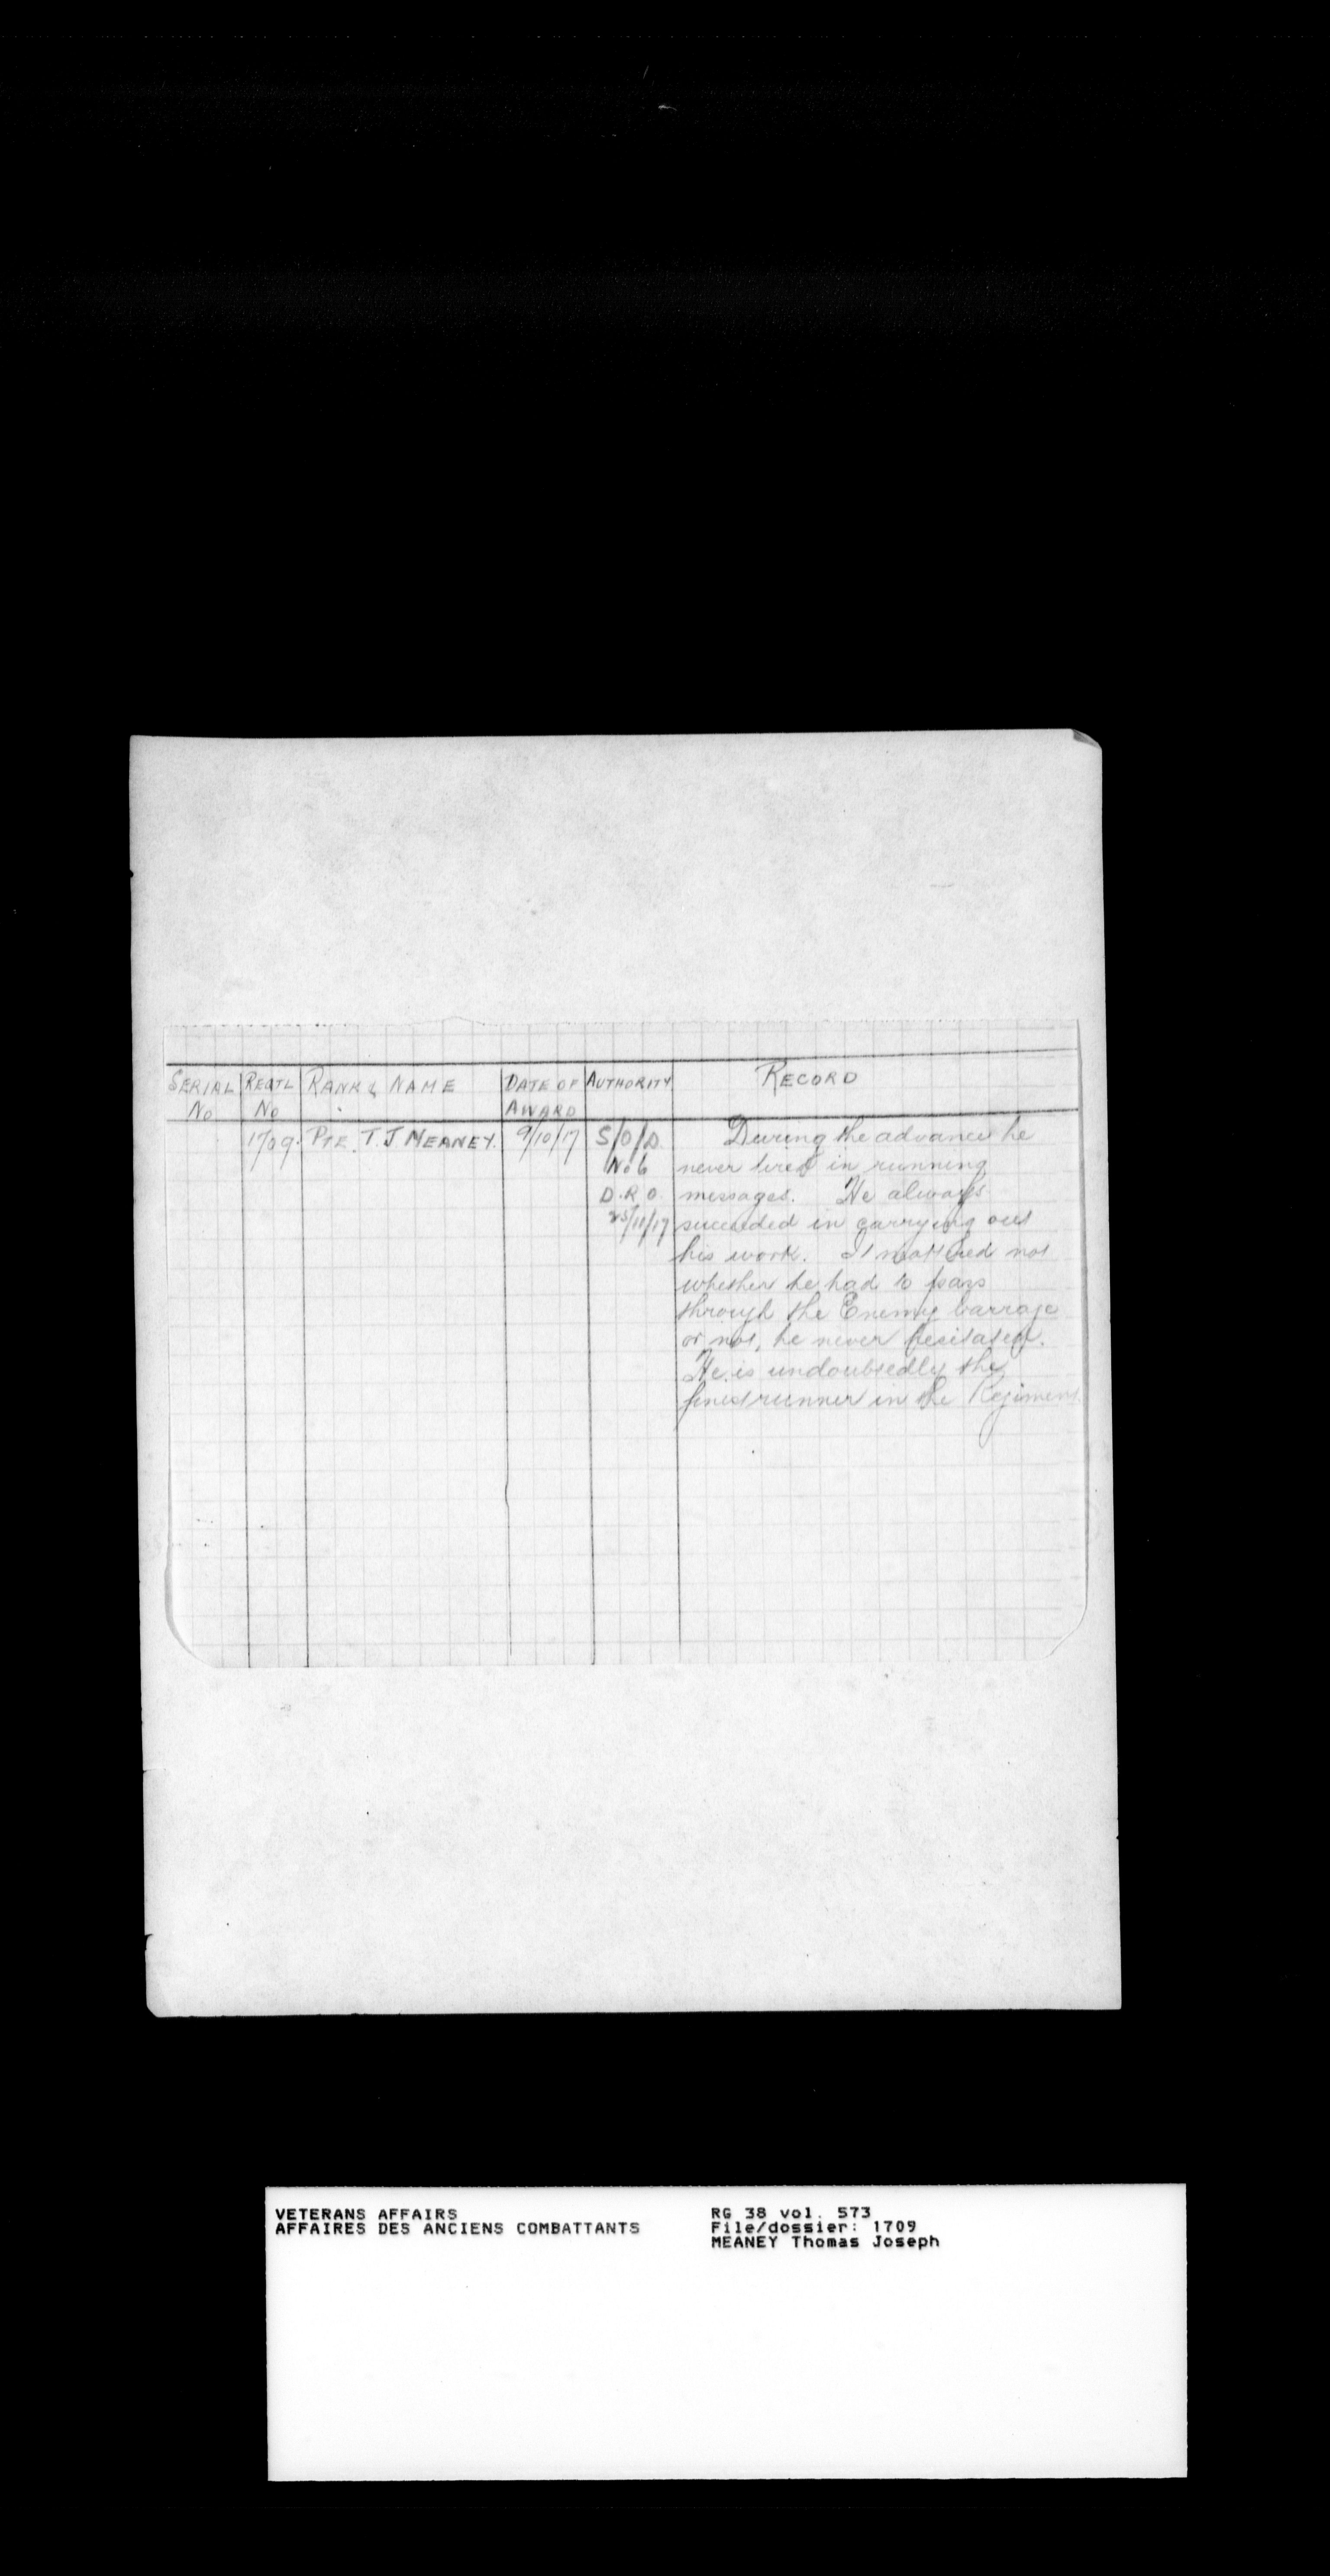 SERIAL No REGTL No RANK & NAME DATE OF AWARD AUTHORITY RECORD
1709. PTE. T. J MEANEY. 9/10/17 S/O/D. During the advance he
No 6 never tired in running
D.R.O. messages. He always
25/11/17 succeeded in carrying out
his work. It mattered not
whether he had to pass
through the Enemy barrage
or not, he never hesitated.
He is undoubtedly the
finest runner in the Regiment
VETERANS AFFAIRS
AFFAIRES DES ANCIENS COMBATTANTS
RG 38 vol. 573
File/dossier: 1709
MEANEY Thomas Joseph